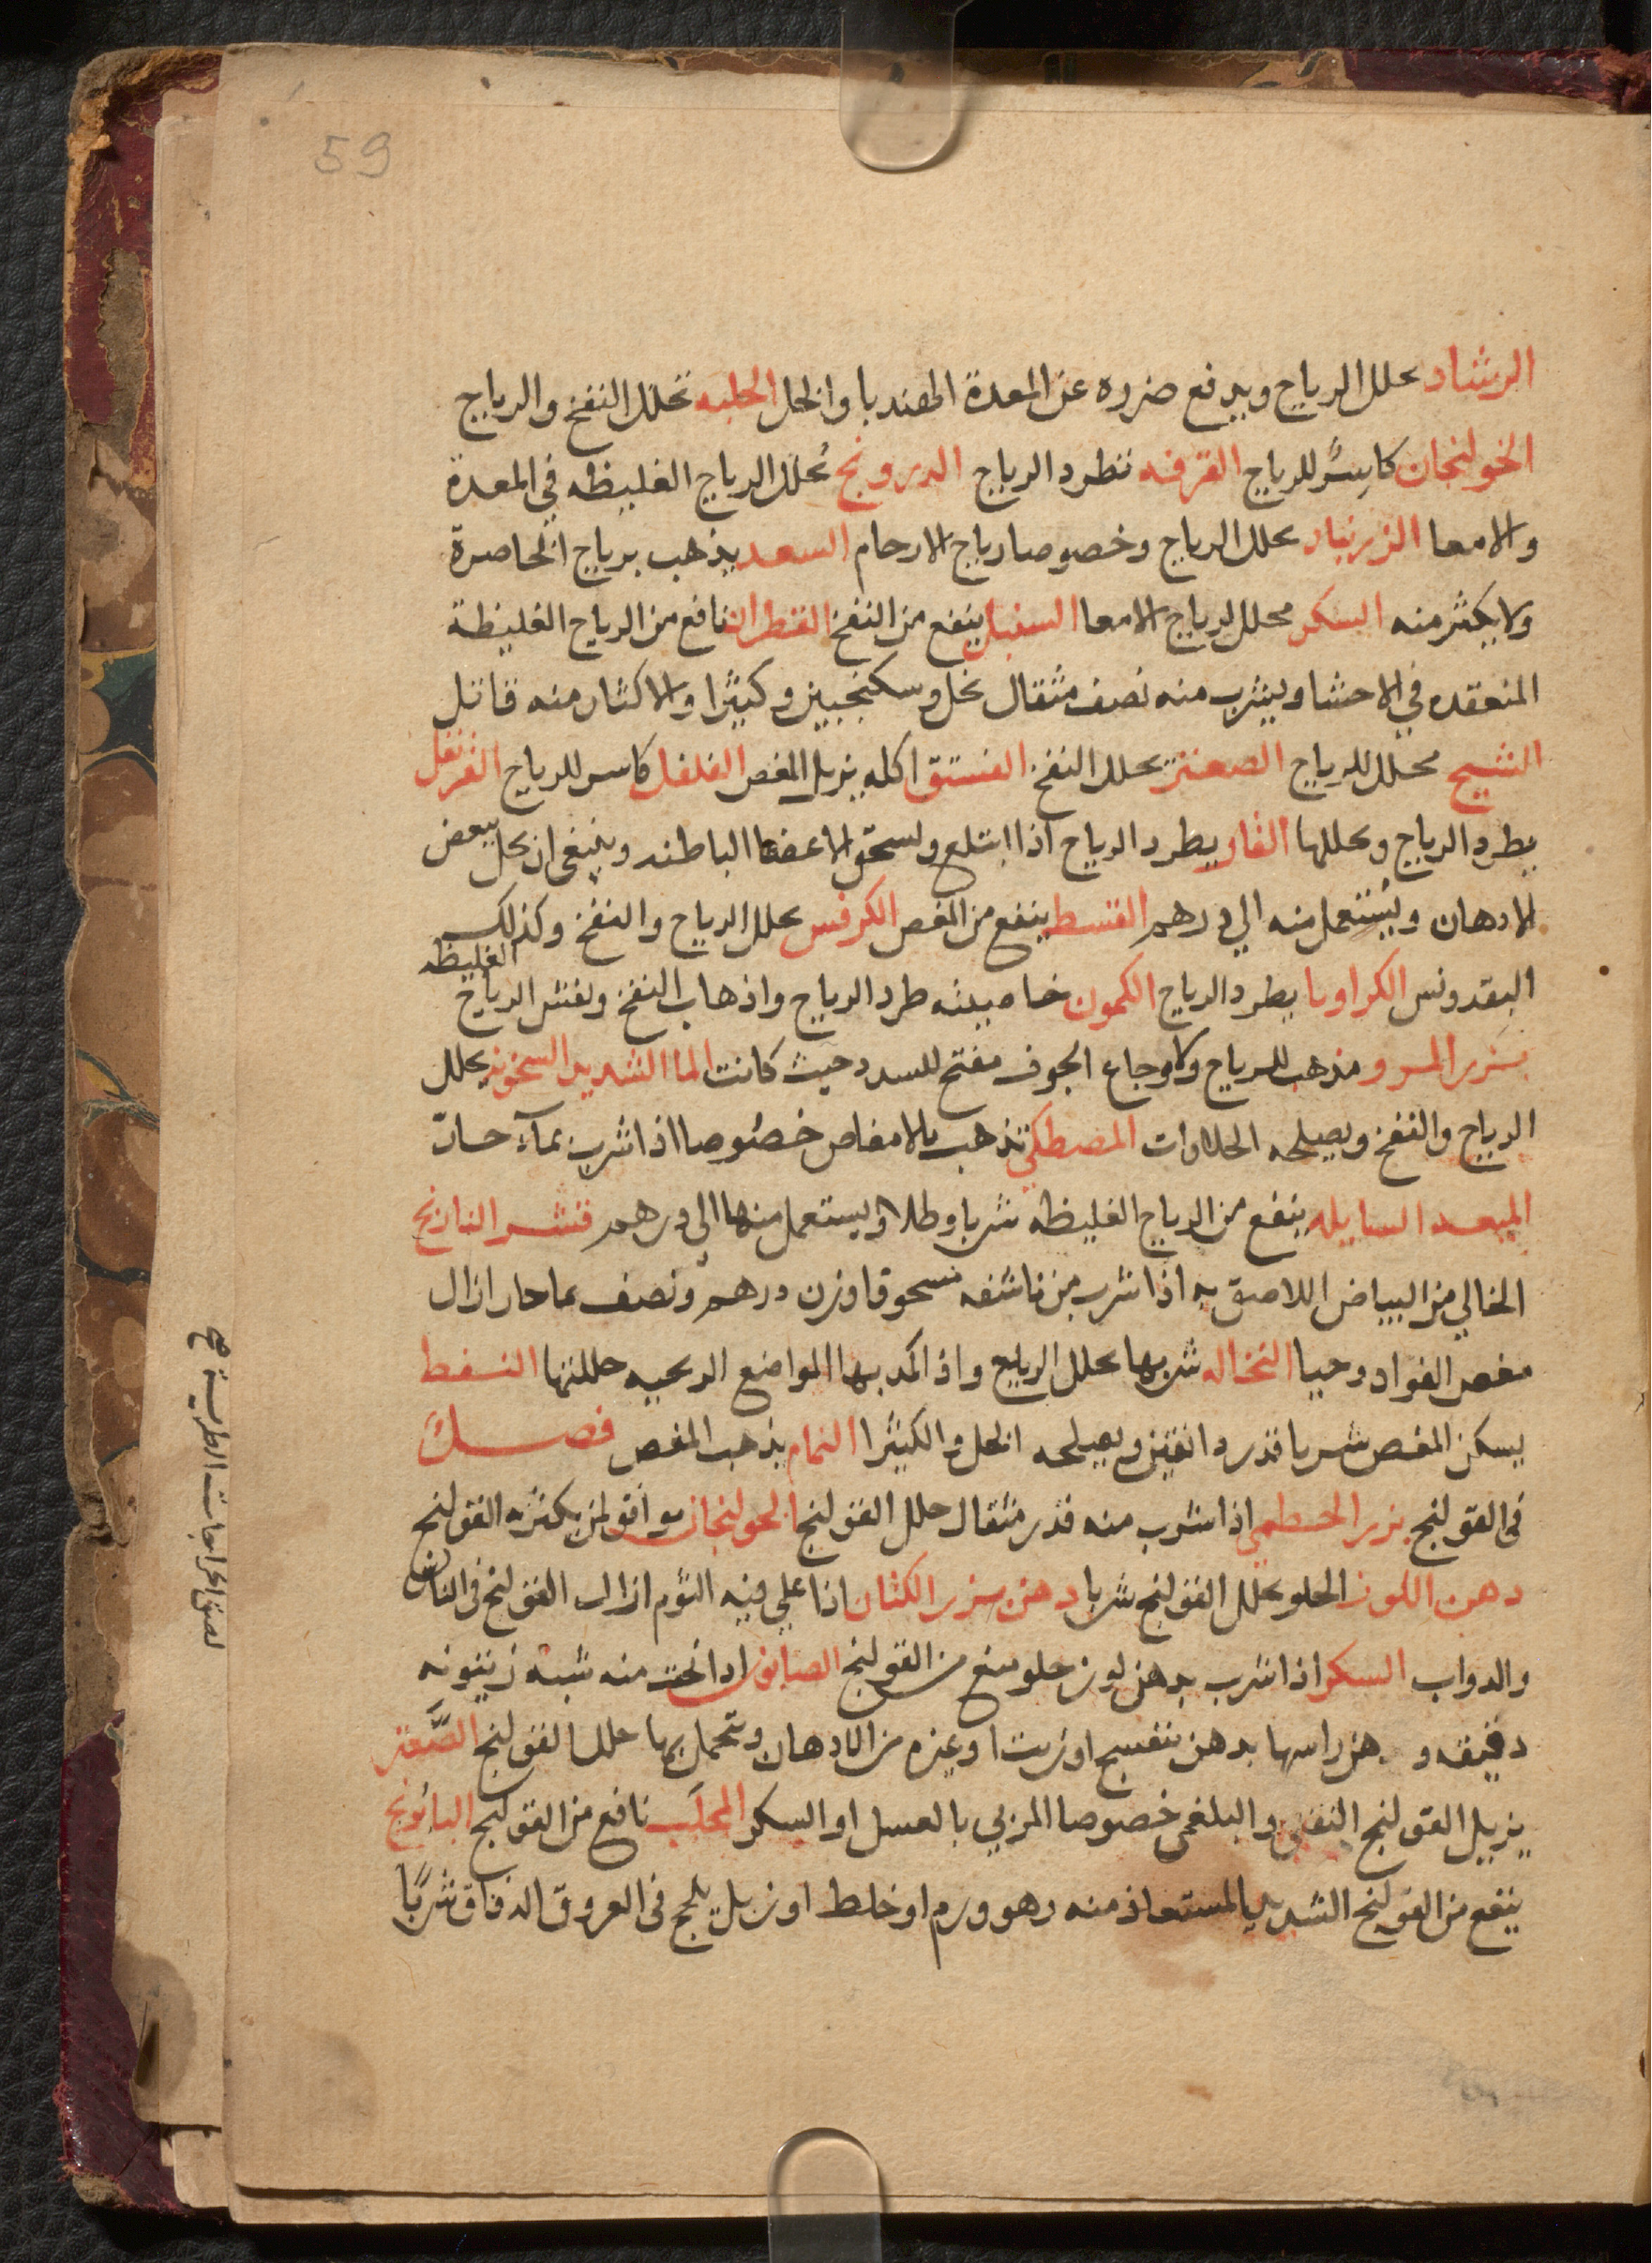 59
الرشاد يحلل الرياج ويدفع ضرره عن المعدة الهندبا والخل الحلبه تحلل النفخ والرياج
الخولنجان كاسِرٌ للرياج القرفه تطرد الرياج الدرونج يُحلل الرياج الغليظه في المعدة
والامعا الزرنباد يحلل الرياج وخصوصا رياج الارحام السعد يذهب برياج الخاصرة
ولا يكثر منه السكر محلل لرياج الامعا السنبل ينفع من النفخ القطران نافع من الرياج الغليظة
المنعقده في الاحشا ويشرب منه نصف مثقال بخل وسكنجبين وكثيرا والاكثار منه قاتل
الشيح محلل للرياج الصعتر يحلل النفخ الفستق اكله يزيل المغص الفلفل كاسر للرياج القرنفل
يطرد الرياج ويحللها الغار يطرد الرياج اذا ابتلع ولسحق الاعضا الباطنه وينبغى ان يحل ببعض
الادهان ويُستعمل منه الي درهم القسط ينفع من المغص الكرفس يحلل الرياج والنفخ وكذلك
البقدونس الكراويا يطرد الرياج الكمون خاصيته طرد الرياج واذهاب النفخ ويفش الرياج الغليظه
بزر المرو مذهب للرياج ولاوجاع الجوف مفتح للسدد حيث كانت الما الشديد السخونه يحلل
الرياج والنفخ ويصلحه الحلاوات المصطكي تذهب بالامغاص خصُوصا اذا شرب بمآء حار
الميعه السايله ينفع من الرياج الغليظه شربا وطلاء ويستعمل منها الي درهم قشر النارنج
الخالي من البياض اللاصق به اذا شرب من ناشفه مسحوقا وزن درهم ونصف بما حار ازال
مغص الفواد وحيا النخاله شربها يحلل الرياج واذا كمد بها المواضع الريحيه حللتها النفط
يسكن المغص شربا قدر دانقين ويصلحه الخل والكثيرا النمام يذهب المغص فصل
في القولنج بزر الخطمي اذا شرب منه قدر مثقال حلل القولنج الخولنجان موافق لمن يكثر به القولنج
دهن اللوز الحلو يحلل القولنج شربا دهن بزر الكتان اذا غلي فيه الثوم ازال القولنج في الناس
والدواب السكر اذا شرب بدهن لوز حلو منع من القولنج الصابون اذا نحت منه شبه زيتونه
دقيقه ودهن راسها بدهن بنفسج او زيت او غيره من الادهان وتحمل بها حلل القولنج الصَّعتر
يزيل القولنج النفخي والبلغمي خصوصا المربي بالعسل او السكر المحلَب نافع من القولنج البابُونج
ينفع من القولنج الشديد المستعاذ منه وهو ورم او خلط او زبل يلحج في العروق الدقاق شربًا